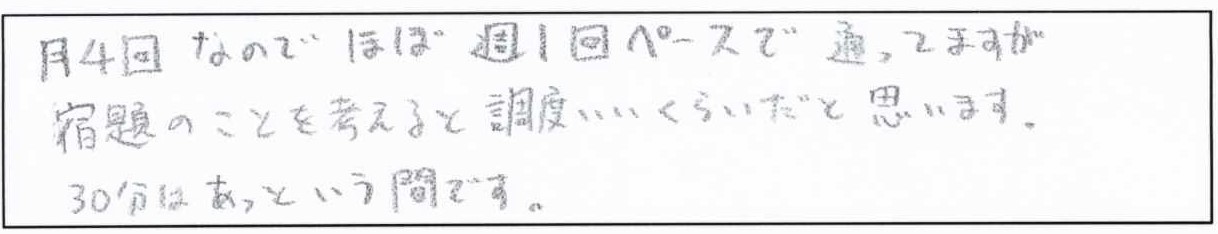 月4回なのでほぼ週1回ペースで通ってますが
宿題のことを考えると調度いいくらいだと思います。
30分はあっという間です。